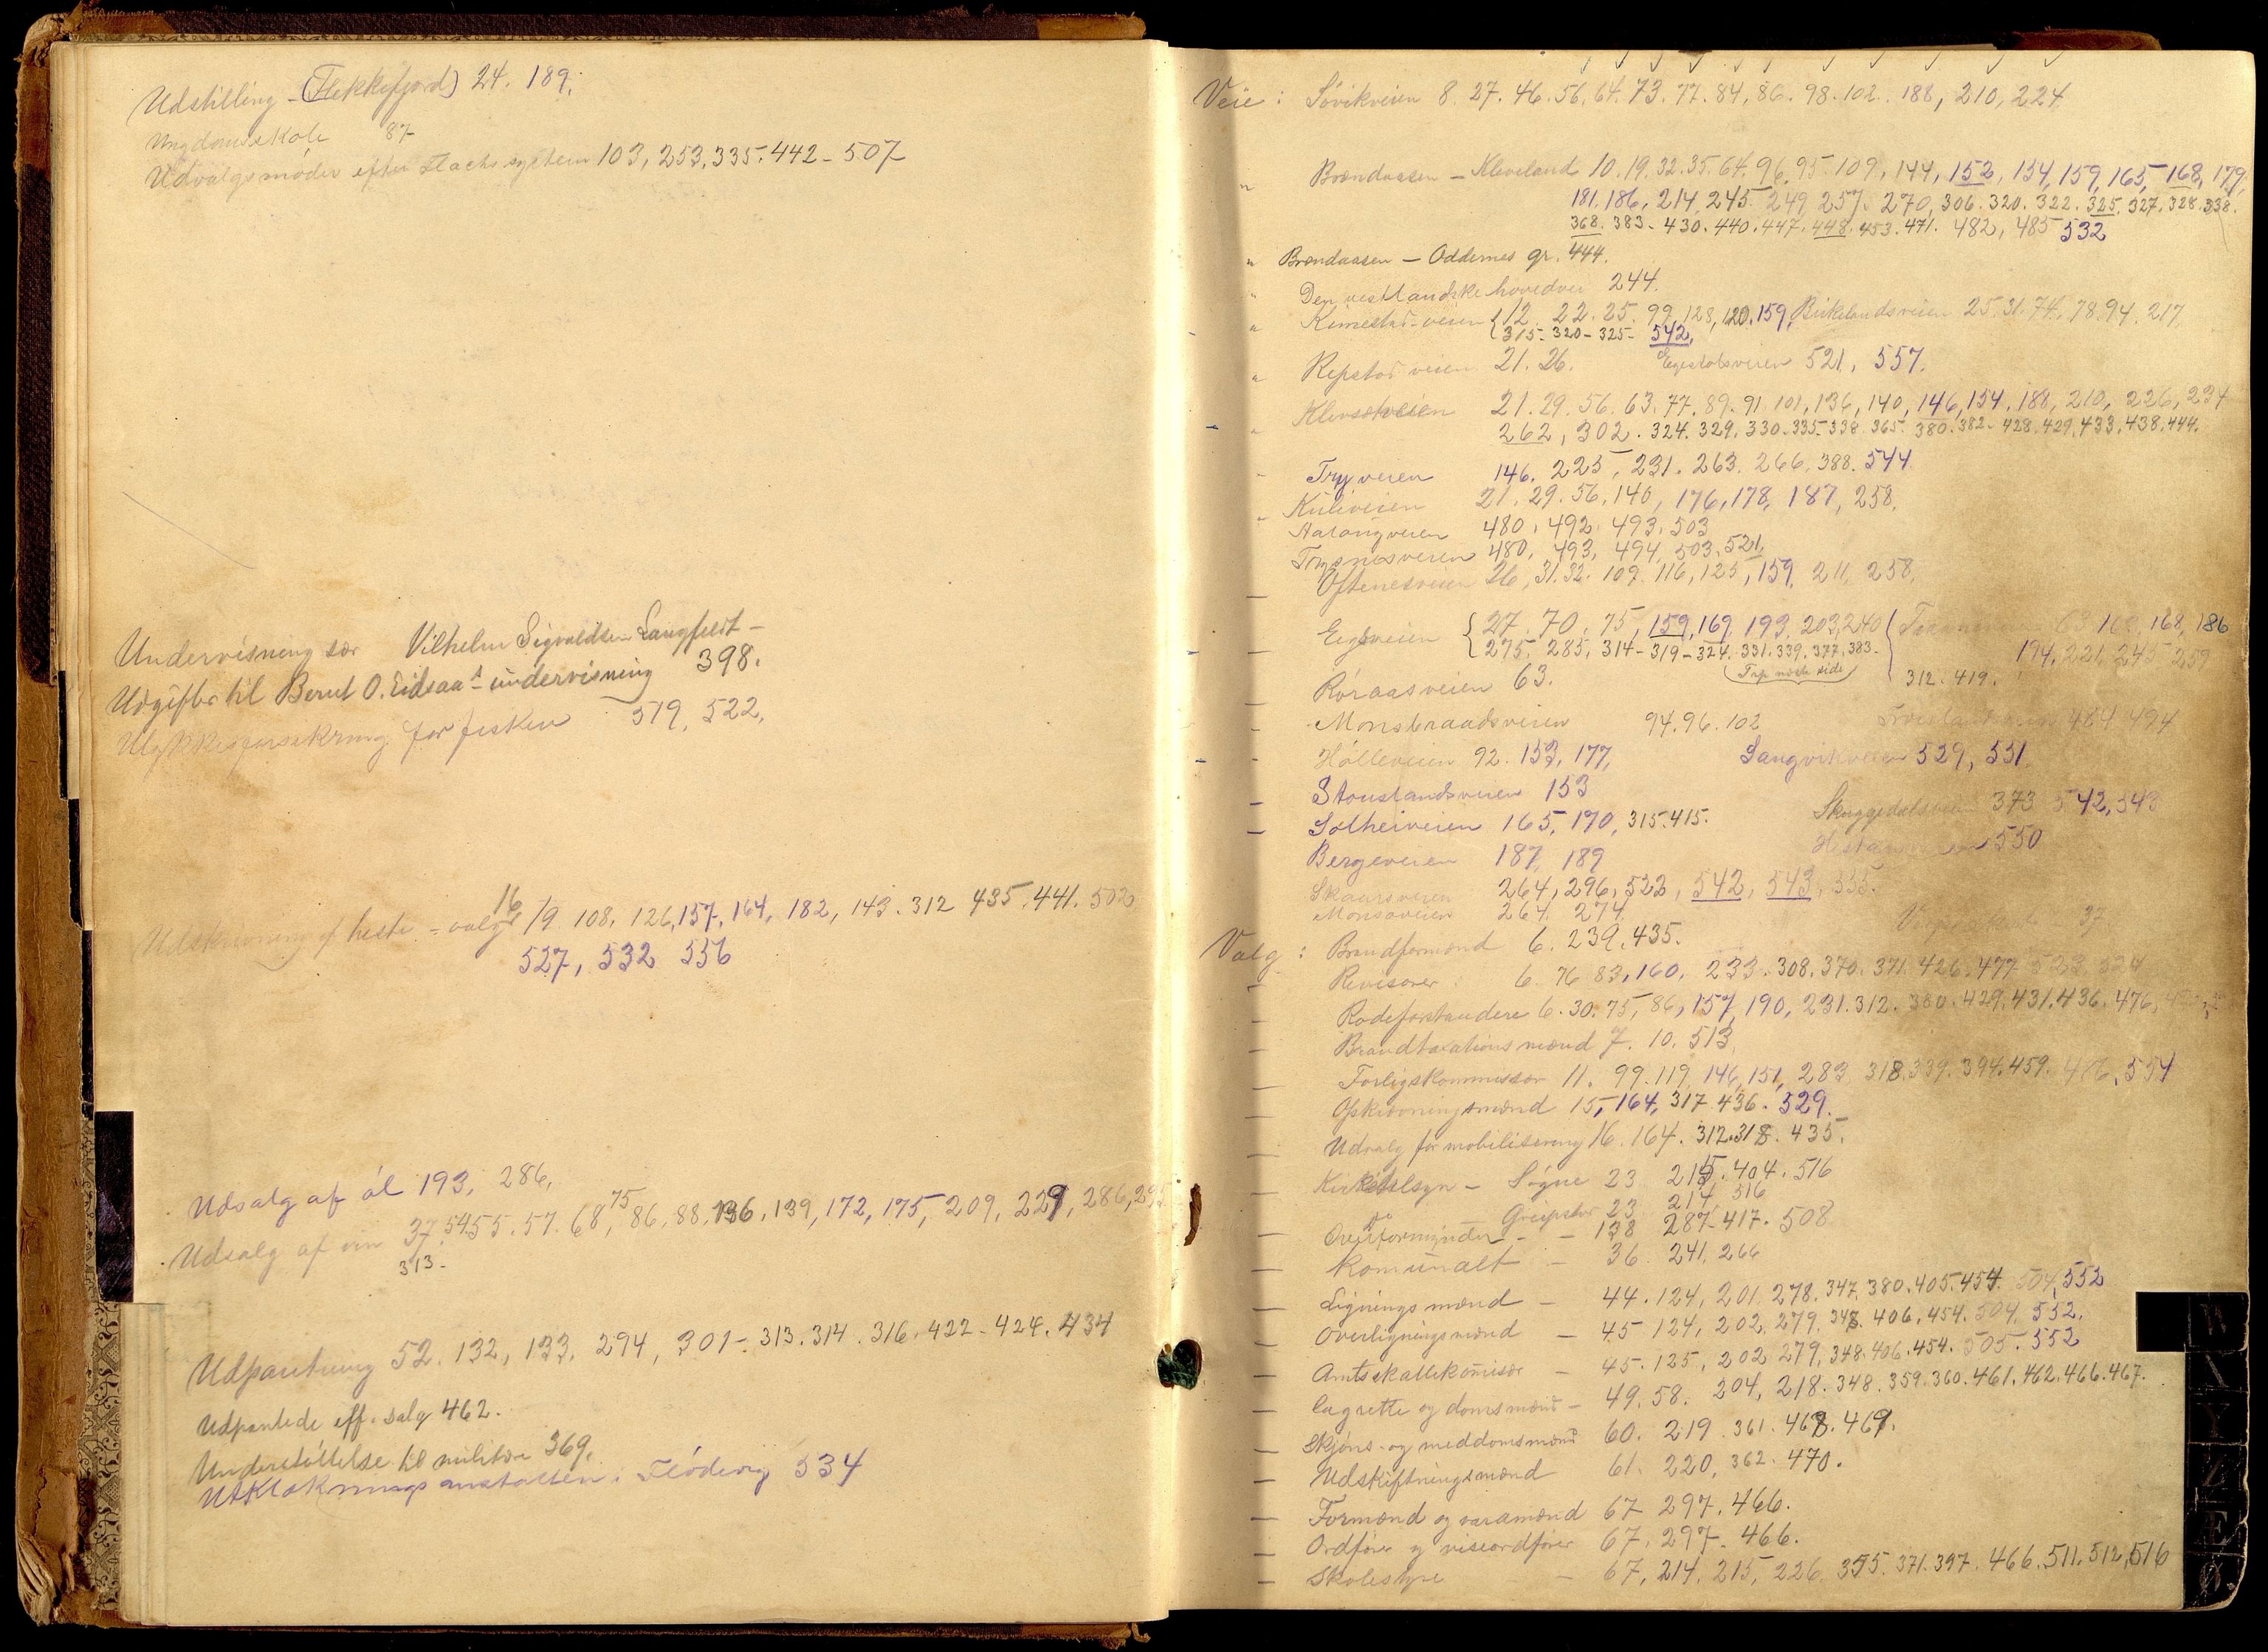 Udstilling - (Flekkefjord) 24. 189.
Ungdomsskole 87
Udvalgsmøder efter Flachs system 103, 253, 335. 442 - 507
Undervisning sær Vilhelm Sigvaldsen Langfeldt -
Udgifter til Bernt O. Eidsaa's undervisning 398.
Ulykkesforsikring for fiskere 519, 522,
Udskrivning af heste - valg 16/9 108, 126, 157, 164, 182, 143. 312 435, 441. 502
527, 532 556
Udsalg af øl 193, 286,
Udsalg af vin 37. 54 55. 57. 68, 75 86, 88, 136, 139, 172, 175, 209, 229, 286, 295
313 -
Udpantning 52. 132, 133, 294, 301 - 313. 314. 316. 422 - 424. 434
Udpantede eff. salg 462.
Understøttelse til militære 369.
Utklækningsanstalten i Flødevig 534
Veie : Søvikveien 8. 27. 46. 56. 64. 73. 77. 84. 86. 98. 102. 188, 210, 224
" Brændaasen - Kleveland 10. 19. 32. 35. 64. 96. 95. 109, 144, 152, 154, 159, 165, 168, 179,
181. 186, 214, 245. 249 257. 270, 306. 320. 322. 325. 327. 328. 338.
368. 383 - 430. 440. 447. 448. 453. 471. 482, 485 532
" Brændaasen - Oddernes gr. 444.
" Den vestlandske hovedvei 244.
" Kimestad-veien { 12. 22. 25. 99, 128, 120. 159, Birkelandsveien 25. 31. 74. 78. 94. 217
{ 315 - 320 - 325 - 542,
" Repstad veien 21. 26. Egestølsveien 521, 557.
" Klevsetveien 21. 29. 56. 63. 77. 89. 91. 101, 136, 140, 146, 154. 188, 210, 226, 234
262, 302. 324. 329. 330. 335. 338. 365 380. 382 - 428. 429. 433. 438. 444.
- Tryveien 146. 225, 231. 263. 266. 388. 544
" Kuliveien 21. 29. 56. 140, 176, 178, 187, 258,
Aarosveien 480, 492, 493, 503
Trysnesveien 480, 493, 494, 503, 521,
- Øftenesveien 26, 31. 32. 109. 116, 125, 159, 211, 258,
- Eigsveien { 27. 70. 75, 159, 169, 193, 203, 240 { 63 168, 186
{ 275. 285. 314 - 319 - 324. 331. 339. 377. 383 - 194, 221, 245 259
(Frp næste side) 312. 419.
- Røraasveien 63.
- Monsbraadsveien 94. 96. 102 484 494
- Hølleveien 92. 153, 177, Langvikveien 529, 531,
- Stauslandsveien 153
- Solheiveien 165, 170, 315. 415. Skuggedalsveien 373 542, 543
Bergeveien 187, 189 550
Skaarsveien 264, 296, 522, 542, 543, 555.
Monsøveien 264 274 37
Valg : Brandformænd 6. 239. 435.
- Revisorer : 6 76 83, 160. 233. 308. 370. 371. 426. 477 523, 524
- Rodeforstandere 6. 30. 75, 86, 157, 190, 231. 312. 380. 429. 431. 436. 476,
- Brandtaxationsmænd 7. 10. 513
- Forligskommissær 11. 99. 119, 146, 151, 283 318. 339. 394. 459. 486, 554
- Opskrivningsmænd 15, 164, 317 436. 529.
- Udvalg for mobilisering 16. 164. 312. 318. 435.
- Kirketilsyn - Søgne 23 215. 404. 516
do Greipstad 23 214 516
- Overformynder - - 138 287 - 417. 508
- Komunalt - 36 241, 266
- Ligningsmænd - 44. 124, 201. 278. 347. 380. 405. 454. 504, 552
- Overligningsmænd - 45 124, 202, 279. 348. 406, 454. 504, 552.
- Amtsskattekomisær - 45. 125, 202 279, 348. 406. 454. 505. 552
- Lagrette og domsmænd - 49. 58. 204, 218. 348. 359. 360. 461. 462. 466. 467.
- Skjøns- og meddomsmænd 60. 219. 361. 468. 469.
- Udskiftningsmænd 61. 220, 362. 470.
- Formænd og varamænd 67 297. 466.
- Ordfører og viseordfører 67. 297. 466.
- Skolestyre - 67, 214, 215, 226. 355. 371. 397. 466. 511. 512, 516
W
X
Y
Z
Æ
Ø